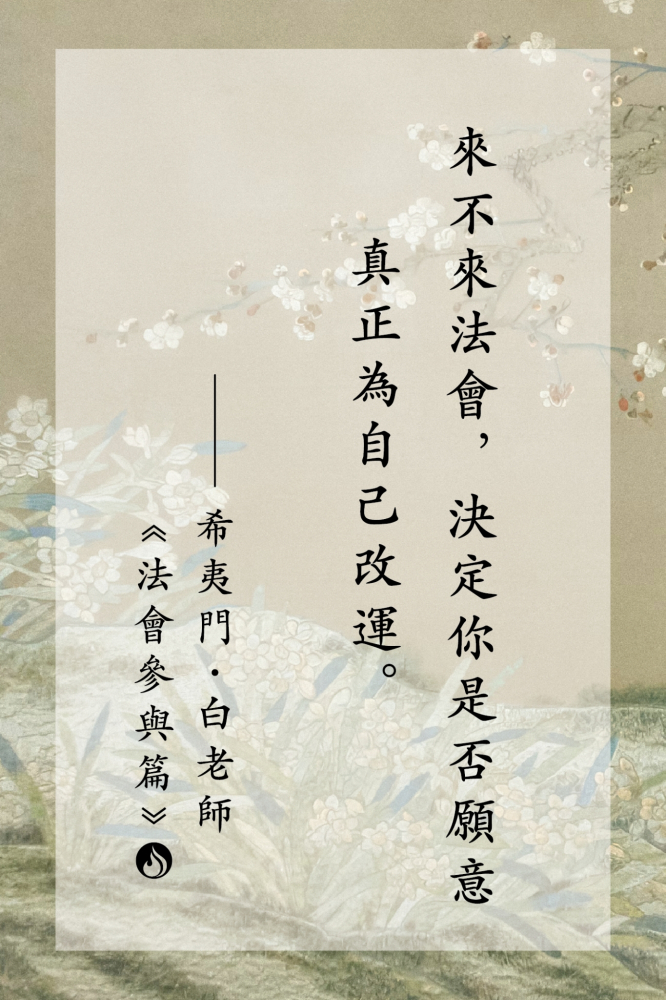 來不來法會，決定你是否願意
真正為自己改運。
——希夷門·白老師
《法會參與篇》